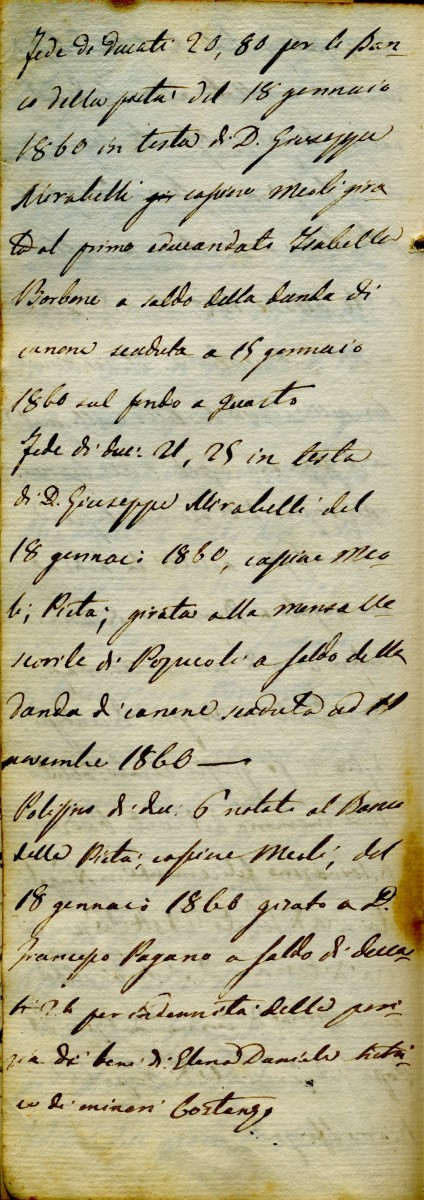 Fede di ducati 20, 80 per lo Ban-
co della pietà del 18 gennaio
1860 in testa di D. Giuseppe
Mirabelli cassiere Meoli gira-
ta al primo educandato Isabella
Borbone a saldo della danda di
canone scaduta a 15 gennaio
1860 sul fondo a Quarto
Fede di duc: 21, 25 in testa
di D. Giuseppe Mirabelli del
18 gennaio 1860, cassiere Meo-
li; Pietà; girata alla mensa Ve-
scovile di Pozzuoli a saldo della
danda di canone scaduta ad 11
novembre 1860 —
Polizzino di duc: 6 notate al Banco
della Pietà, cassiere Meoli, del
18 gennaio 1860 girato a D.
Francesco Pagano a saldo di duca-
ti 26 per indennità della peri-
zia di beni di Elena Daniele
co di minori Costanzo